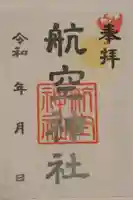 奉拝
航空神社
令和 年 月 日